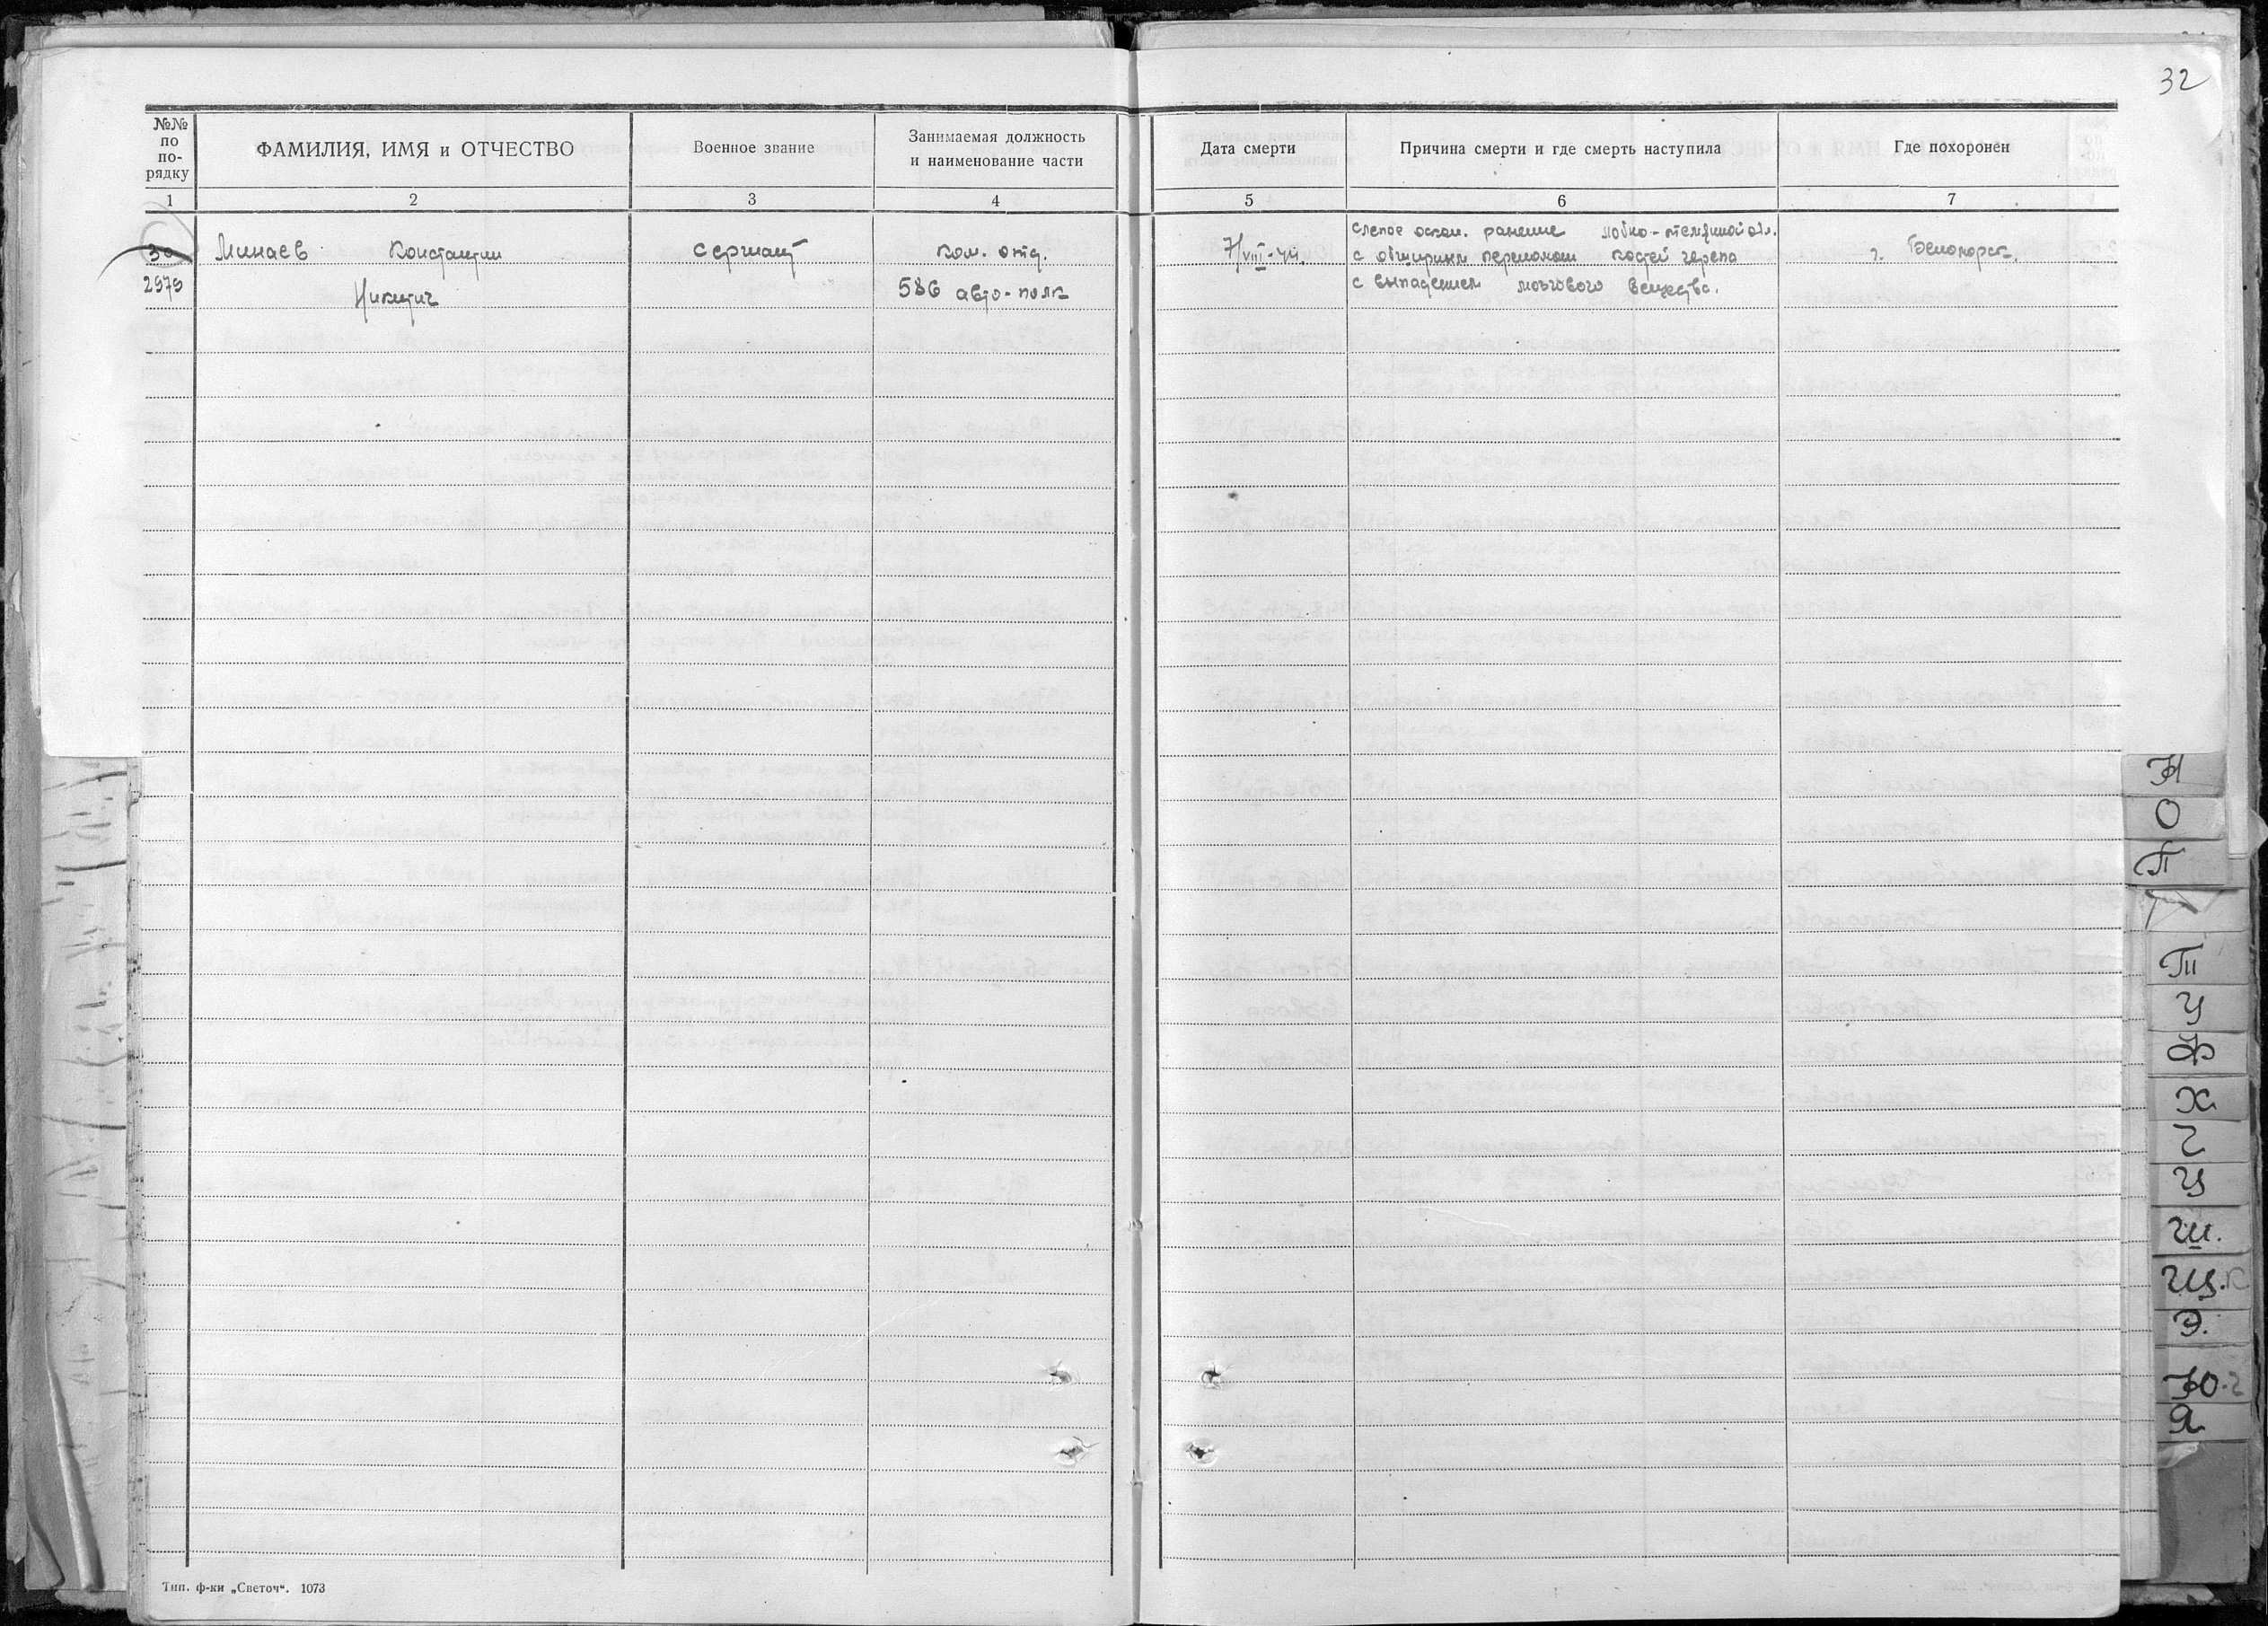 32
№№
по
по-
рядку
ФАМИЛИЯ, ИМЯ и ОТЧЕСТВО
Военное звание
Занимаемая должность
и наименование части
Дата смерти
Причина смерти и где смерть наступила
Где похоронен
1 2 3 4 5 6 7
30
2979
Минаев Константин
Никитич
сержант
ком. отд.
586 авто-полк
7/VIII-44
слепое оскол. ранение лобно-теменной обл.
с обширным переломом костей черепа
с выпадением мозгового вещества.
г. Беломорск.
Н
О
П
Т
У
Ф
Х
Ч
Ц
Ш.
Щ.
Э.
Ю.
Я
Тип. ф-ки „Светоч“. 1073